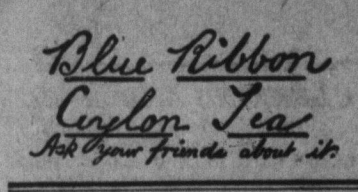 Blue Ribbon
Ceylon Tea
Ask your friends about it.